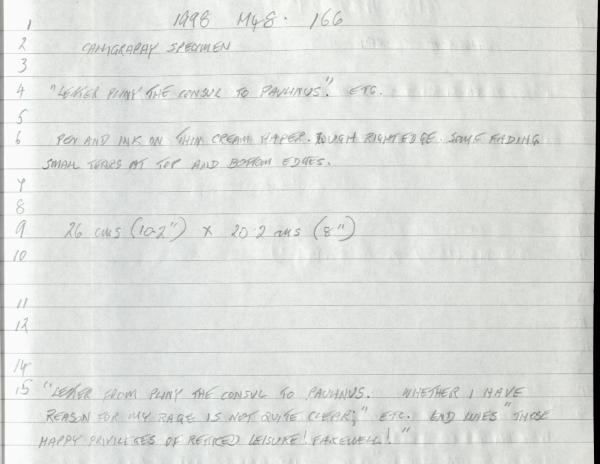 1 1998 M48. 166
2 CALLIGRAPHY SPECIMEN
3
4 "LETTER PLINY THE CONSUL TO PAULINUS". ETC.
5
6 PEN AND INK ON THIN CREAM PAPER. ROUGH RIGHT EDGE. SOME FADING
SMALL TEARS AT TOP AND BOTTOM EDGES.
7
8
9 26 cms (10.2") x 20.2 cms (8")
10
11
12
14
15 "LETTER FROM PLINY THE CONSUL TO PAULINUS. WHETHER I HAVE
REASON FOR MY RAGE IS NOT QUITE CLEAR;" ETC. END LINES "THOSE
HAPPY PRIVILEGES OF RETIRED LEISURE! FAREWELL!"